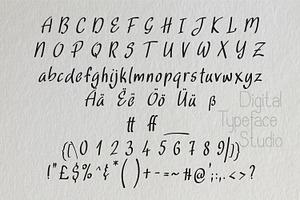 A B C D E F G H I J K L M
N O P Q R S T U V W X Y Z
abcdefghijklmnopqrstuvwxyz
Ää Ëë Öö Üü β
tt ff
Digital
Typeface
Studio
((\0 1 2 3 4 5 6 7 8 9|))
!"£$%^&*()+-=~#@';:,.<>?